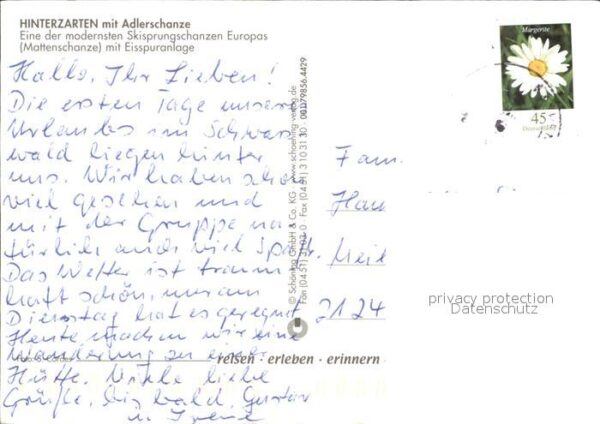 HINTERZARTEN mit Adlerschanze
Eine der modernsten Skisprungschanzen Europas
(Mattenschanze) mit Eisspuranlage
Hallo, Ihr Lieben!
Die ersten Tage unseres
Urlaubs im Schwarz
wald liegen hinter
uns. Wir haben schon
viel gesehen und
mit der Gruppe na
türlich auch viel Spaß.
Das Wetter ist traum
haft schön, nur am
Dienstag hat es geregnet
Heute machen wir eine
Wanderung zu einer
Hütte. Viele liebe
Grüße, bis bald. Gustav
u. Irene
© Schöning GmbH & Co. KG · www.schoening-verlag.de
Fon (0451) 3103-0 · Fax (0451) 3103130 · 001/79856.4429
reisen · erleben · erinnern
Margerite
45
Deutschland
Fam.
Hau
2124
privacy protection
Datenschutz